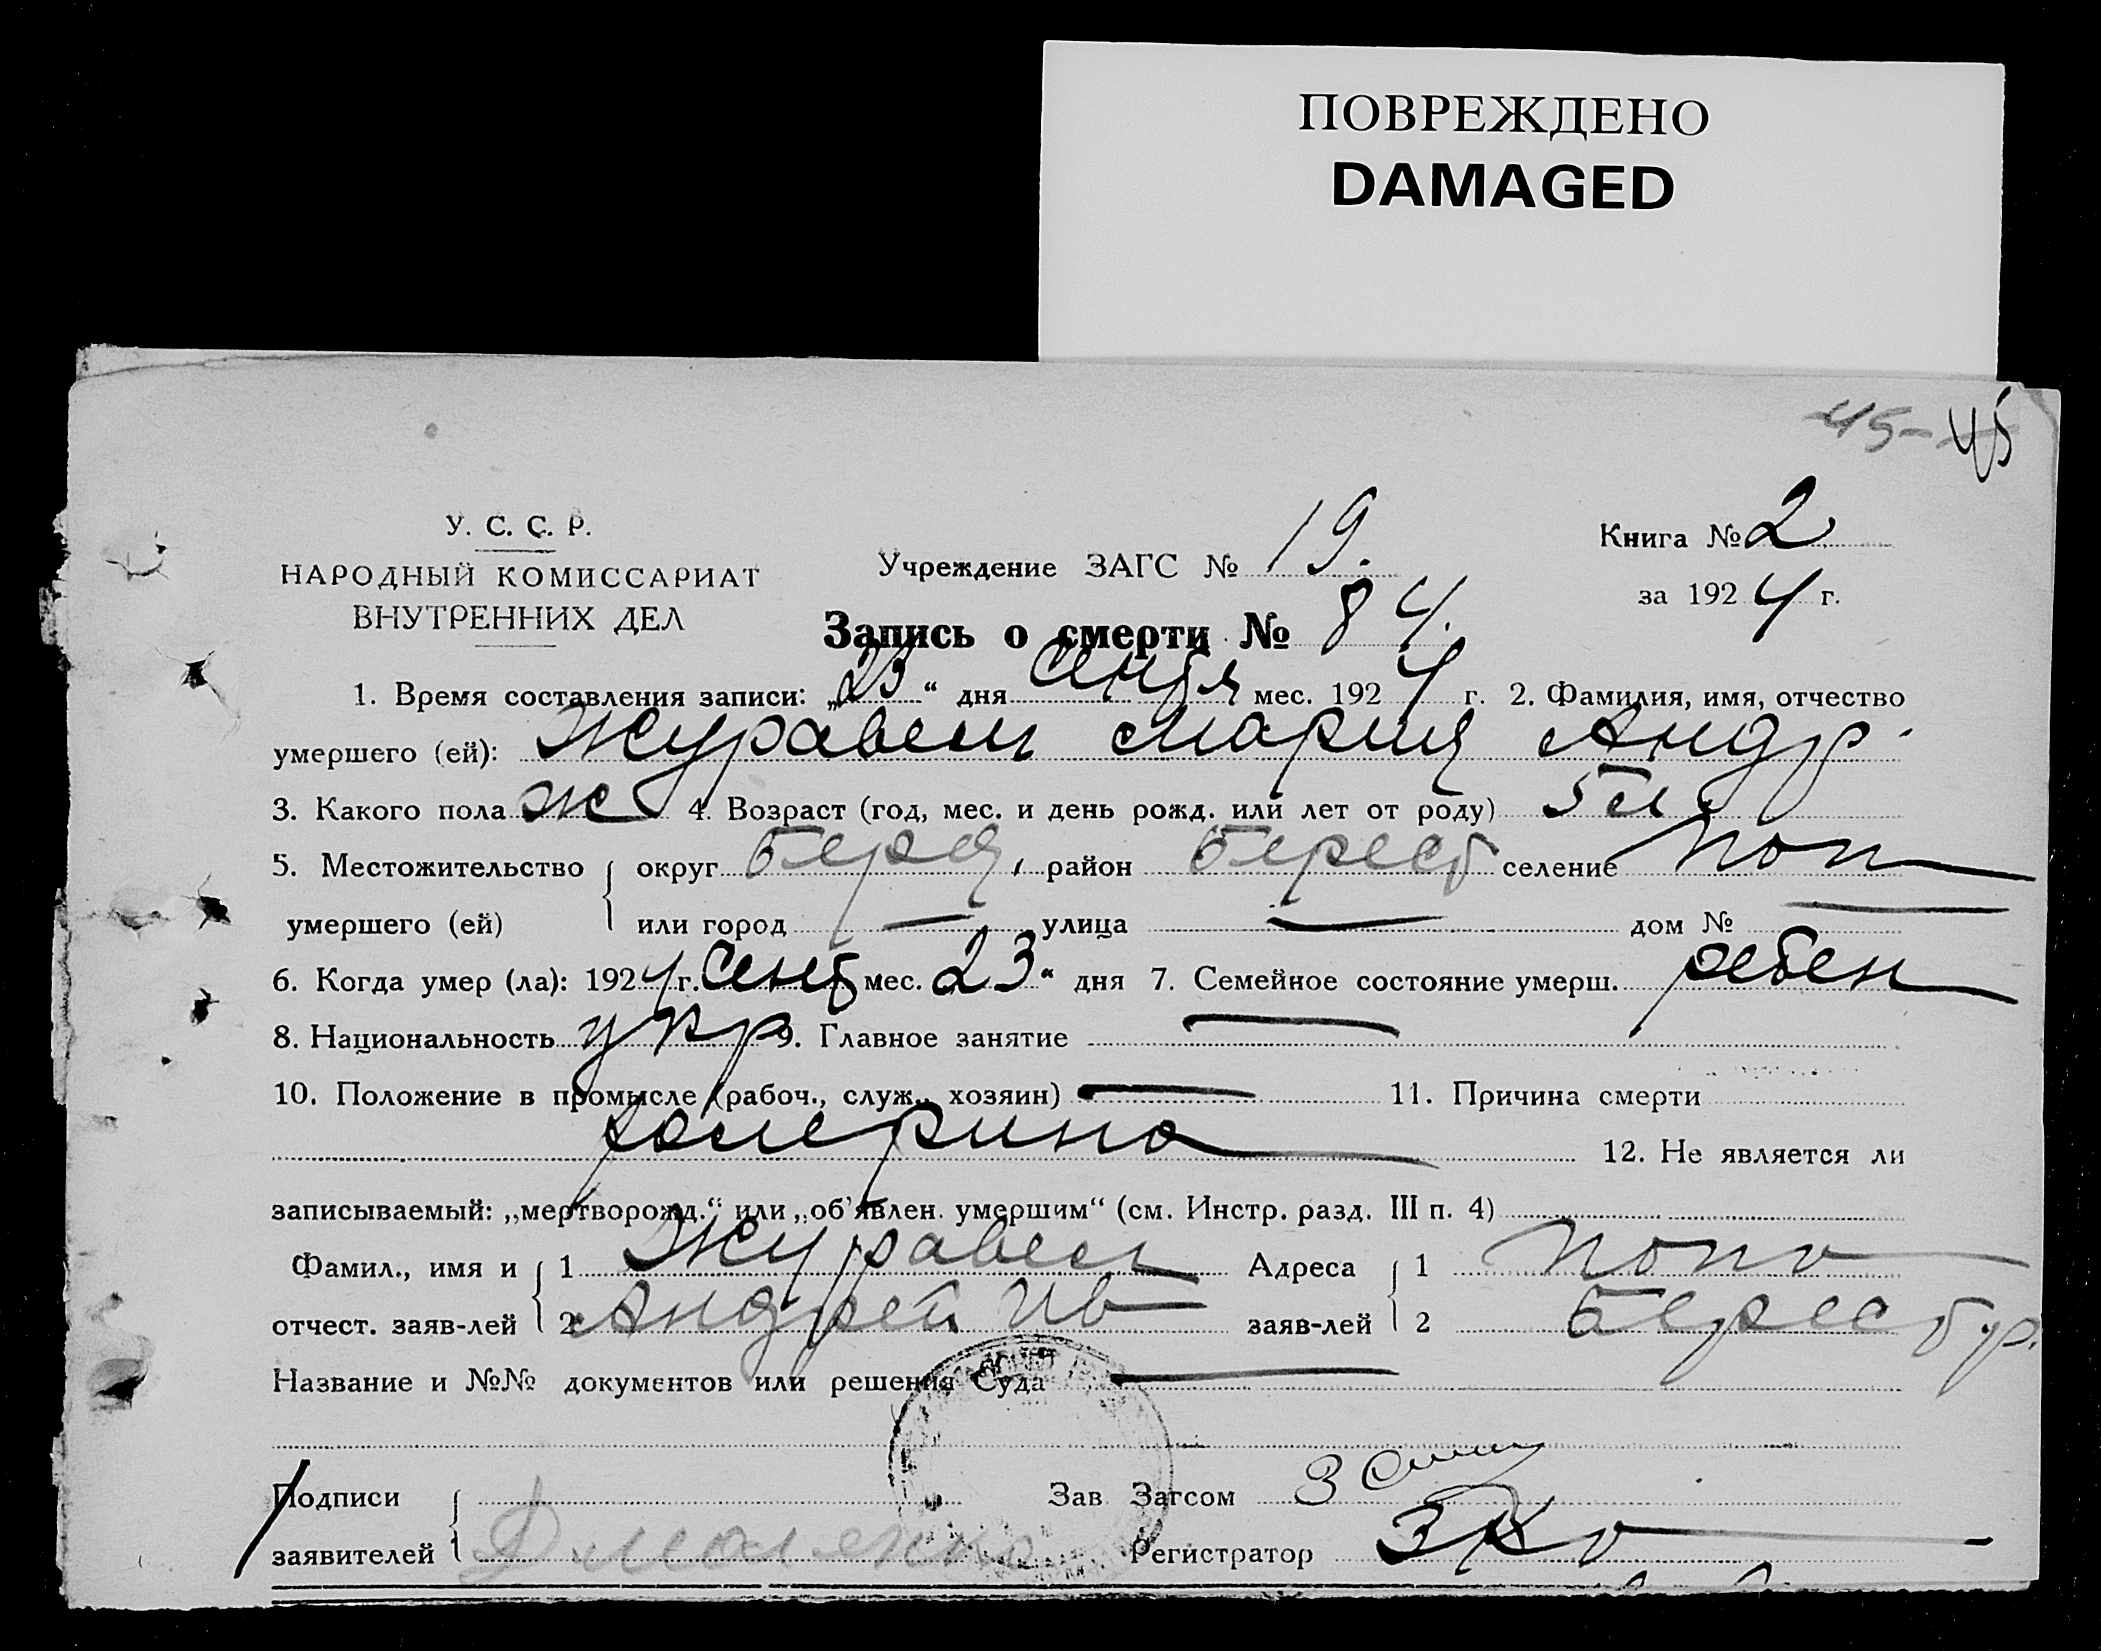 ПОВРЕЖДЕНО
DAMAGED
45- 45
У. С. С. Р.
НАРОДНЫЙ КОМИССАРИАТ
ВНУТРЕННИХ ДЕЛ
Учреждение ЗАГС № 19.
Книга № 2
за 1924 г.
Запись о смерти № 84.
1. Время составления записи: „23“ дня сентбя мес. 1924 г. 2. Фамилия, имя, отчество
умершего (ей): Журавель Мария Андр.
3. Какого пола ж 4. Возраст (год, мес. и день рожд. или лет от роду) 5 л.
5. Местожительство округ район Берест селение Поп
умершего (ей) или город — улица — дом № —
6. Когда умер (ла): 1924 г. сент мес. 23“ дня 7. Семейное состояние умерш. ребен
8. Национальность укр 9. Главное занятие —
10. Положение в промысле (рабоч., служ., хозяин) — 11. Причина смерти
12. Не является ли
записываемый: „мертворожд.“ или „об'явлен. умершим“ (см. Инстр. разд. III п. 4)
Фамил., имя и 1 Журавель Адреса 1 Попо
отчест. заяв-лей 2 Андрей Ив заяв-лей 2 Берест р.
Название и №№ документов или решения Суда —
Подписи Зав. Загсом
заявителей Регистратор